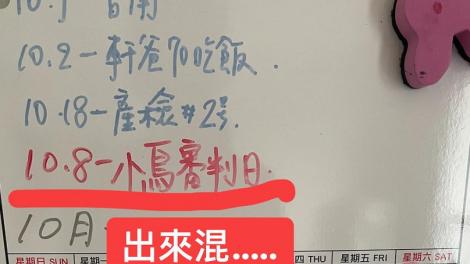 10.2-軒爸70吃飯.
10.18-產檢#2号.
10.8-小鳥審判日.
10月
出來混.....
星期日 SUN 星期一 四 THU 星期五 FRI 星期六 SAT